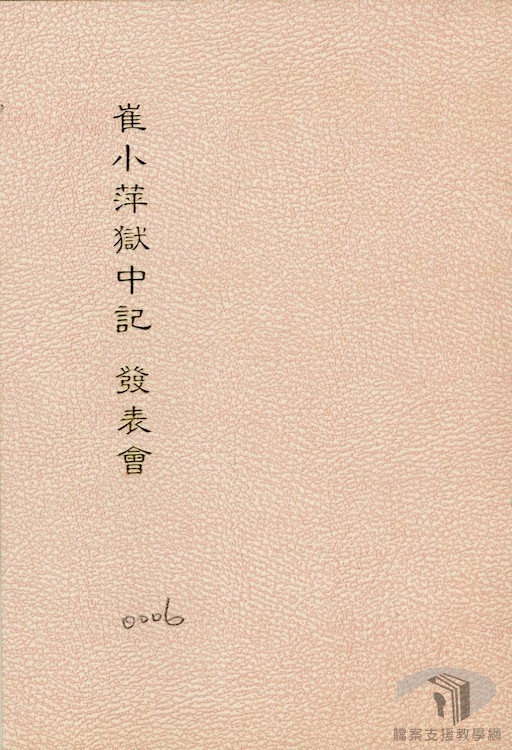 崔小萍獄中記 發表會
0006
檔案支援教學網